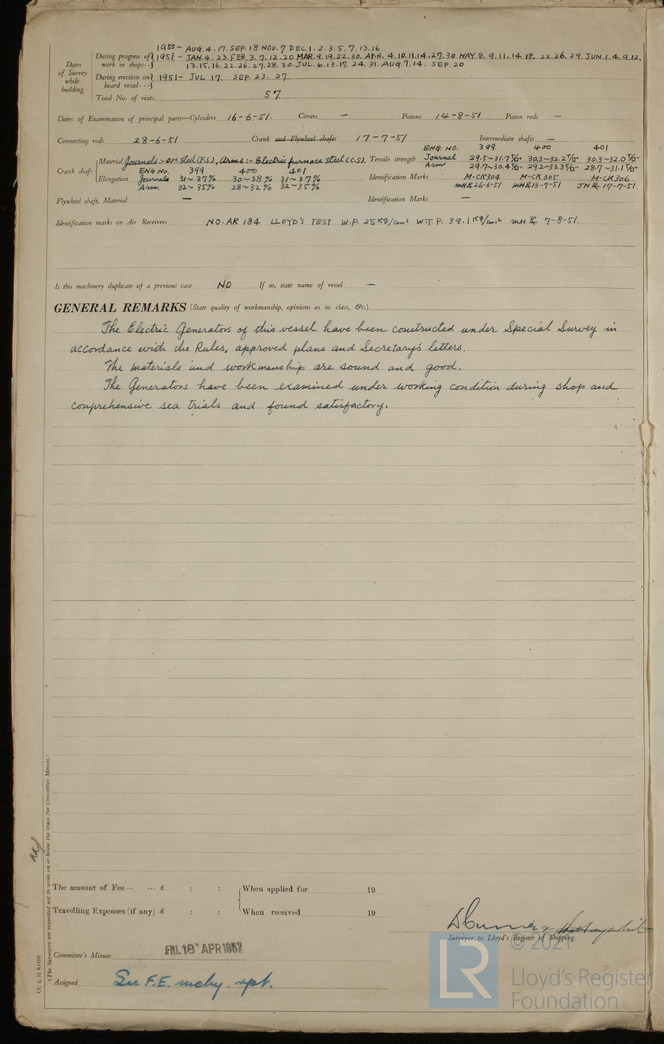 1950 - AUG. 4. 17. SEP. 18 NOV. 7 DEC. 1. 2. 3. 5. 7. 13. 16.
Dates of Survey while building
During progress of work in shops - - 1951 - JAN. 4. 23. FEB. 3. 7. 12. 20 MAR. 9. 19. 22. 30. APR. 4. 10. 11. 14. 27. 30 MAY 8. 9. 11. 14. 18. 22. 26. 29. JUN. 1. 4. 9. 12.
13. 15. 16. 22. 26. 27. 28. 30. JUL. 6. 13. 17. 24. 31. AUG. 7. 14. SEP. 20
During erection on board vessel - - - 1951 - JUL 17. SEP. 23. 27.
Total No. of visits 57
Dates of Examination of principal parts—Cylinders 16-6-51. Covers — Pistons 14-8-51 Piston rods —
Connecting rods 28-6-51 Crank and Flywheel shafts 17-7-51 Intermediate shafts —
ENG. NO. 399 400 401
Crank shaft Material Journals :- O.H. Steel (F.S), Arms :- Electric furnace steel (C.S). Tensile strength Journal 29.5~31.7 T/□" 30.3~32.2 T/□" 30.3~32.0 T/□"
Arm 29.7~30.4 T/□" 29.2~33.3 T/□" 28.7~31.1 T/□"
ENG. NO. 399 400 401
Elongation Journals 31~37% 30~38% 31~37% Identification Marks M-CK304 M-CK305 M-CK306
Arm. 32~35% 28~32% 32~35% 26-6-51 13-7-51 17-7-51
Flywheel shaft, Material — Identification Marks —
Identification marks on Air Receivers NO. AR 184 LLOYD'S TEST W.P. 25 KG/cm² W.T.P. 39.1 KG/cm² 7-8-51.
Is this machinery duplicate of a previous case NO If so, state name of vessel —
GENERAL REMARKS (State quality of workmanship, opinions as to class, &c.)
The Electric Generators of this vessel have been constructed under Special Survey in
accordance with the Rules, approved plans and Secretary's letters.
The materials and workmanship are sound and good.
The Generators have been examined under working condition during shop and
comprehensive sea trials and found satisfactory.
(The Surveyors are requested not to write on or below the space for Committee's Minute.)
The amount of Fee - - - £ : : When applied for 19
Travelling Expenses (if any) £ : : When received 19
Surveyor to Lloyd's Register of Shipping.
Committee's Minute FRI. 18 APR 1952
Assigned See F.E. mchy. rpt.
LR
© 2021
Lloyd's Register
Foundation